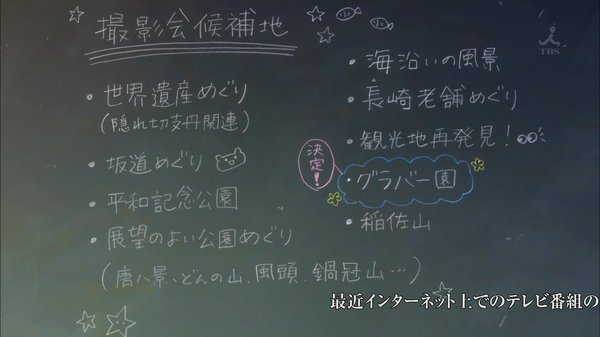 撮影会候補地
・世界遺産めぐり
(隠れ切支丹関連)
・坂道めぐり
・平和記念公園
・展望のよい公園めぐり
(唐八景、どんの山、風頭、鍋冠山…)
・海沿いの風景
・長崎老舗めぐり
・観光地再発見!
決定!
・グラバー園
・稲佐山
TBS
最近インターネット上でのテレビ番組の